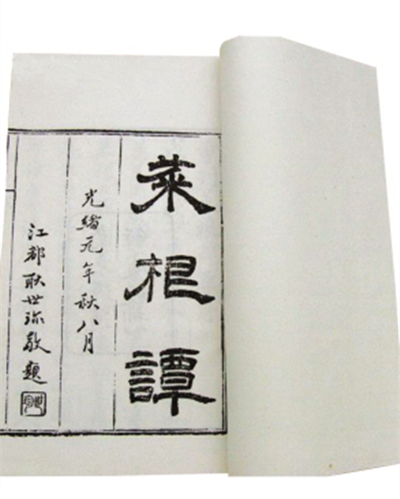 菜根譚
光緒元年秋八月
江都耿世珎敬題